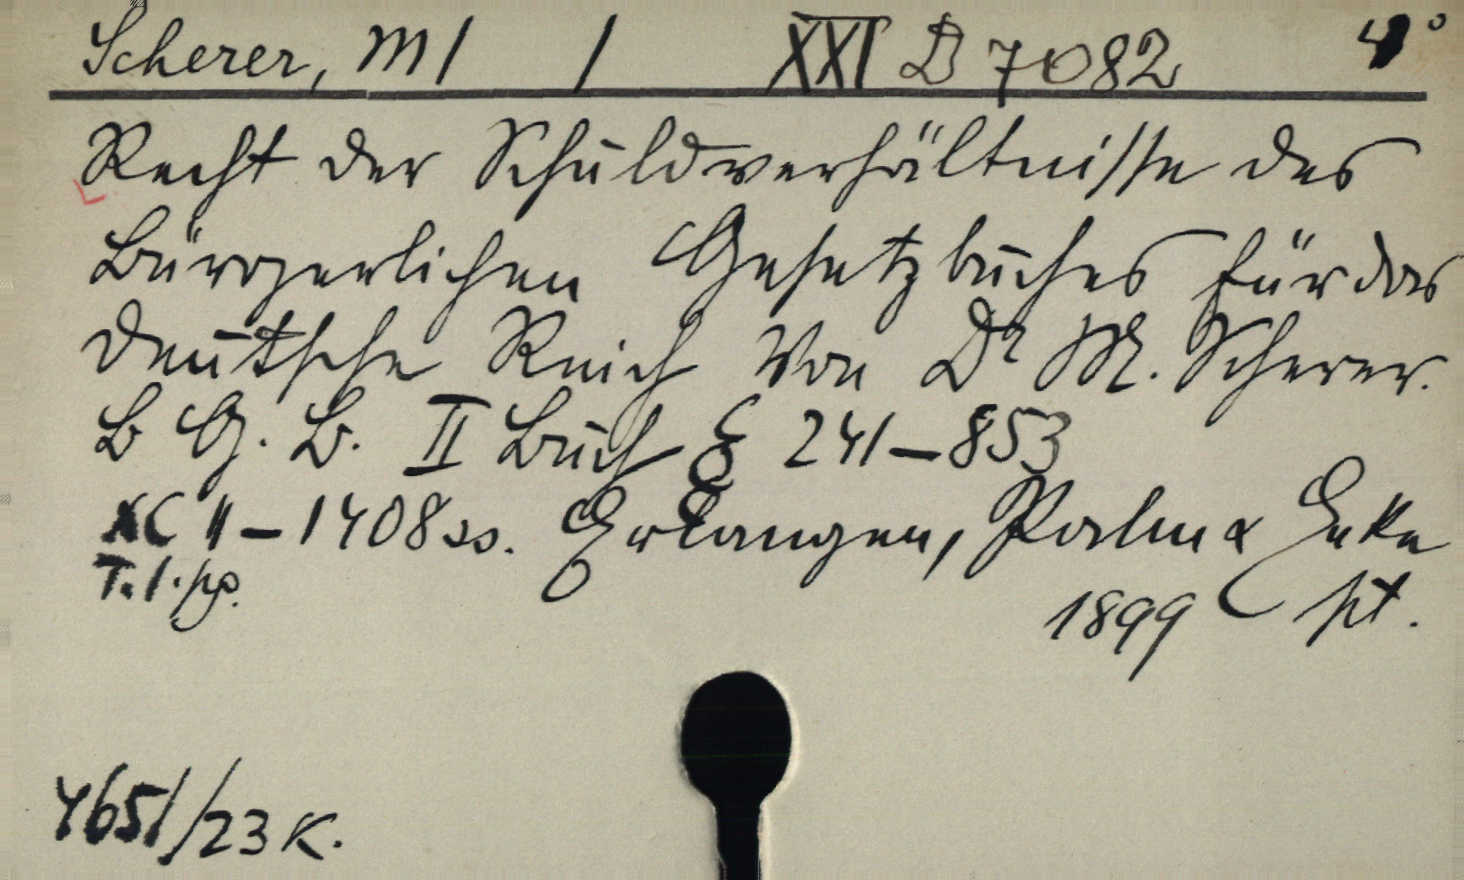 Scherer, M / / XXI D 7082 4°
Recht der Schuldverhältnisse des
Bürgerlichen Gesetzbuches für das
deutsche Reich Von Dr M. Scherer.
B G. B. II Buch § 241–853
XC II – 1408 ss. Erlangen, Palm & Enke
T. 1. pp. 1899 pt.
4651/23 K.